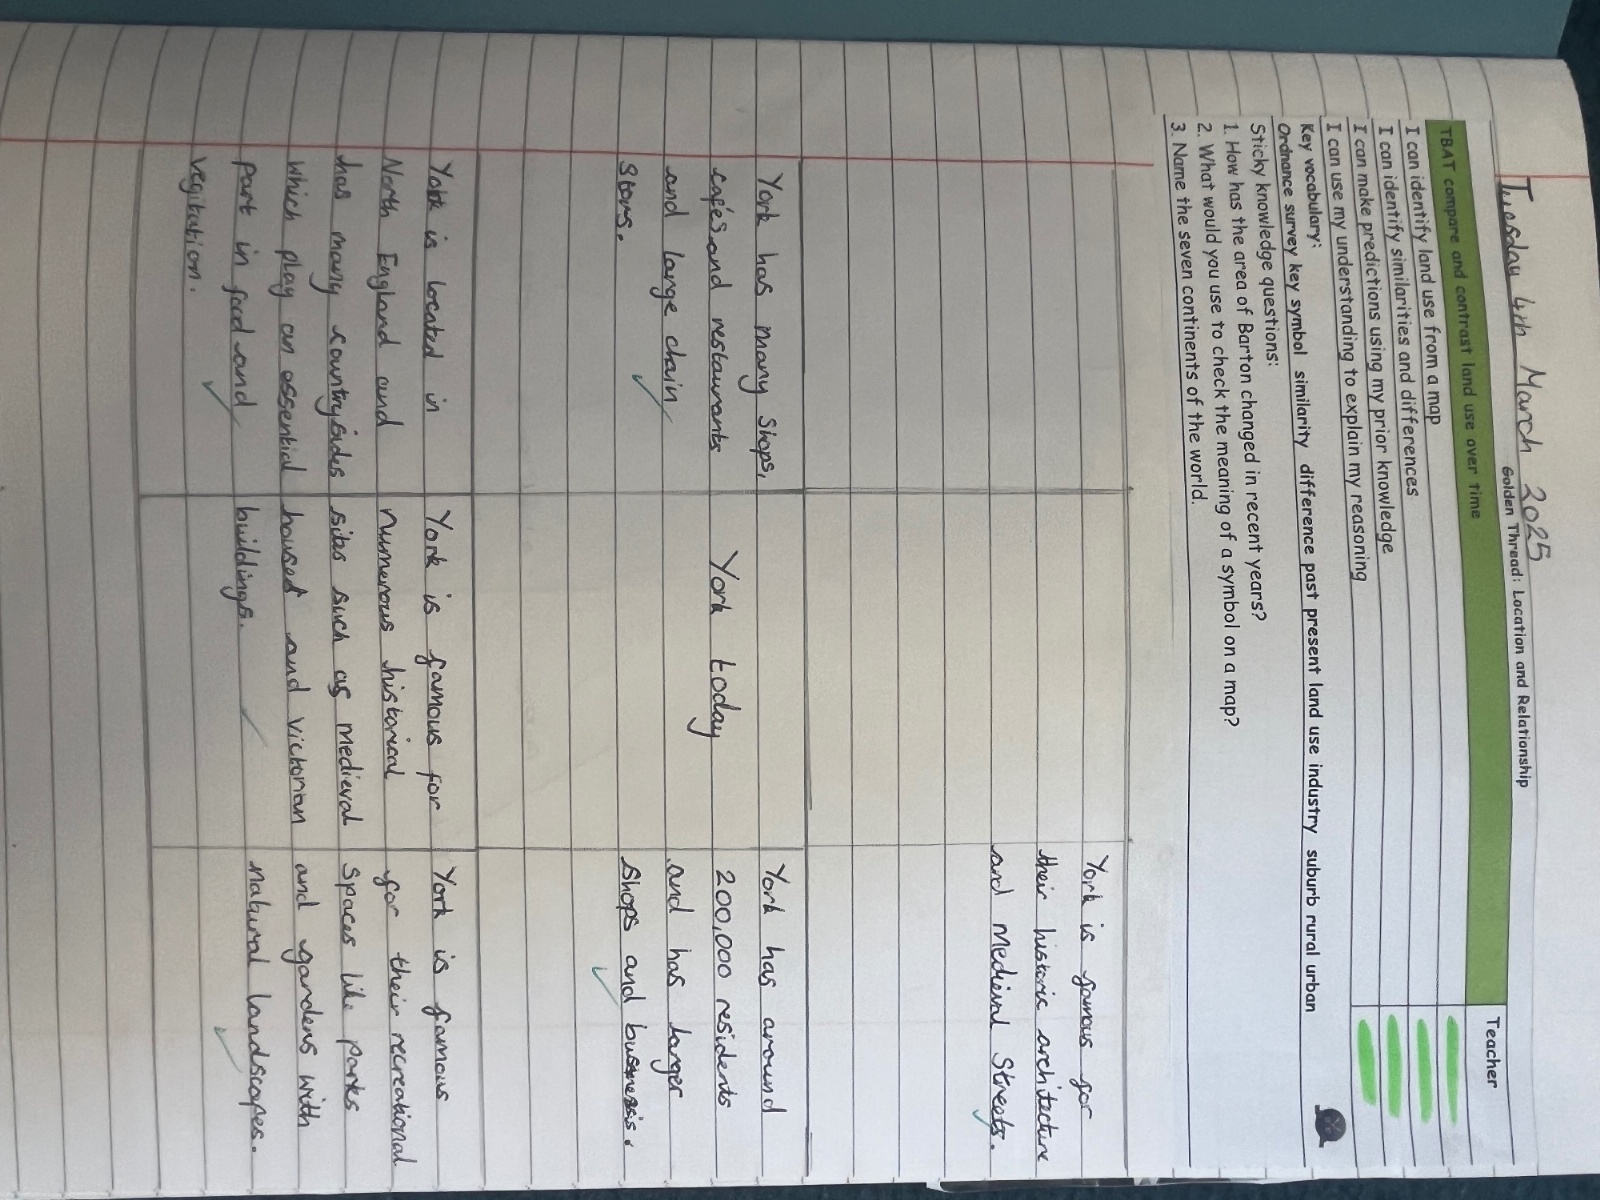 Tuesday 4th March 2025
Golden Thread: Location and Relationship
TBAT compare and contrast land use over time
Teacher
I can identify land use from a map
I can identify similarities and differences
I can make predictions using my prior knowledge
I can use my understanding to explain my reasoning
Key vocabulary:
Ordnance survey key symbol similarity difference past present land use industry suburb rural urban
Sticky knowledge questions:
1. How has the area of Barton changed in recent years?
2. What would you use to check the meaning of a symbol on a map?
3. Name the seven continents of the world.
York is famous for
their historic architecture
and Medieval Streets.
York has many Shops,
cafés and restaurants
and large chain
Stors.
York today
York has around
200,000 residents
and has larger
shops and busnessis.
York is located in
North England and
has many countrysides
which play an essential
part in food and
vegitation.
York is famous for
numerous historical
sites such as Medieval
houses and victorian
buildings.
York is famous
for their recreational
Spaces like parks
and gardens with
natural landscapes.